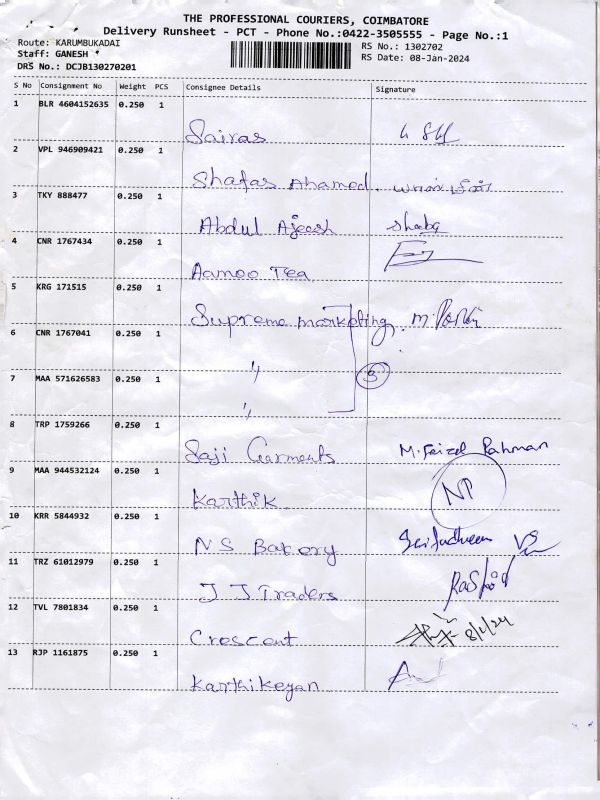 THE PROFESSIONAL COURIERS, COIMBATORE
Delivery Runsheet - PCT - Phone No.:0422-3505555 - Page No.:1
Route: KARUMBUKADAI
RS No.: 1302702
Staff: GANESH
RS Date: 08-Jan-2024
DRS No.: DCJB130270201
S No Consignment No Weight PCS Consignee Details Signature
1 BLR 4604152635 0.250 1
Sairas
2 VPL 946909421 0.250 1
Shafas Ahamed.
3 TKY 888477 0.250 1
Abdul Ajeesh
4 CNR 1767434 0.250 1
Aamoo Tea
5 KRG 171515 0.250 1
Supreme marketing.
6 CNR 1767041 0.250 1
"
3
7 MAA 571626583 0.250 1
"
8 TRP 1759266 0.250 1
Saji Garments M. Faizel Rahman
9 MAA 944532124 0.250 1
Karthik NP
10 KRR 5844932 0.250 1
N S Bakery
11 TRZ 61012979 0.250 1
J J Traders Rashid
12 TVL 7801834 0.250 1
Crescent 8/1/24
13 RJP 1161875 0.250 1
Karthikeyan